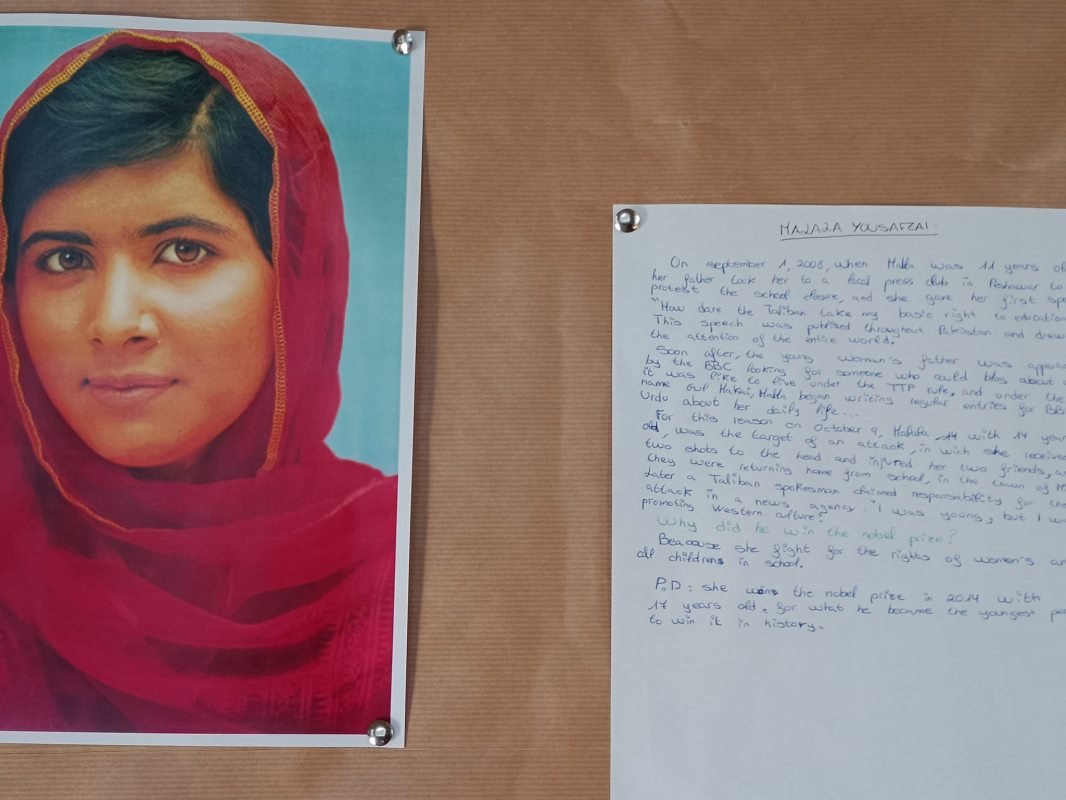 MALALA YOUSAFZAI:
On september 1, 2008, when Malala was 11 years
her father took her to a local press club in Peshawar to
protest the school closure, and she gave her first
"How dare the Taliban take my basic right to education
This speech was publised throughout Pakistan and drew
the attention of the entire world.
Soon after, the young woman's father was
by the BBC looking for someone who could blog about
it was like to live under the TTP rule, and under the
name Gul Makai, Malala began writing regular entries for BBC
Urdu about her daily life...
For this reason on October 9, Malala, 14 with 14
old, was the target of an attack, in wich she received
two shots to the head and injured her two friends,
they were returning home from school, in the town of
Later a Taliban spokesman claimed responsability for the
attack in a news agency: "I was young, but I
promoting Western culture".
Why did he win the nobel prize?
Beacouse she fight for the rights of women's
all childrens in school.
P.D: she wons the nobel prize in 2014 with
17 years old, for what he became the youngest
to win it in history.